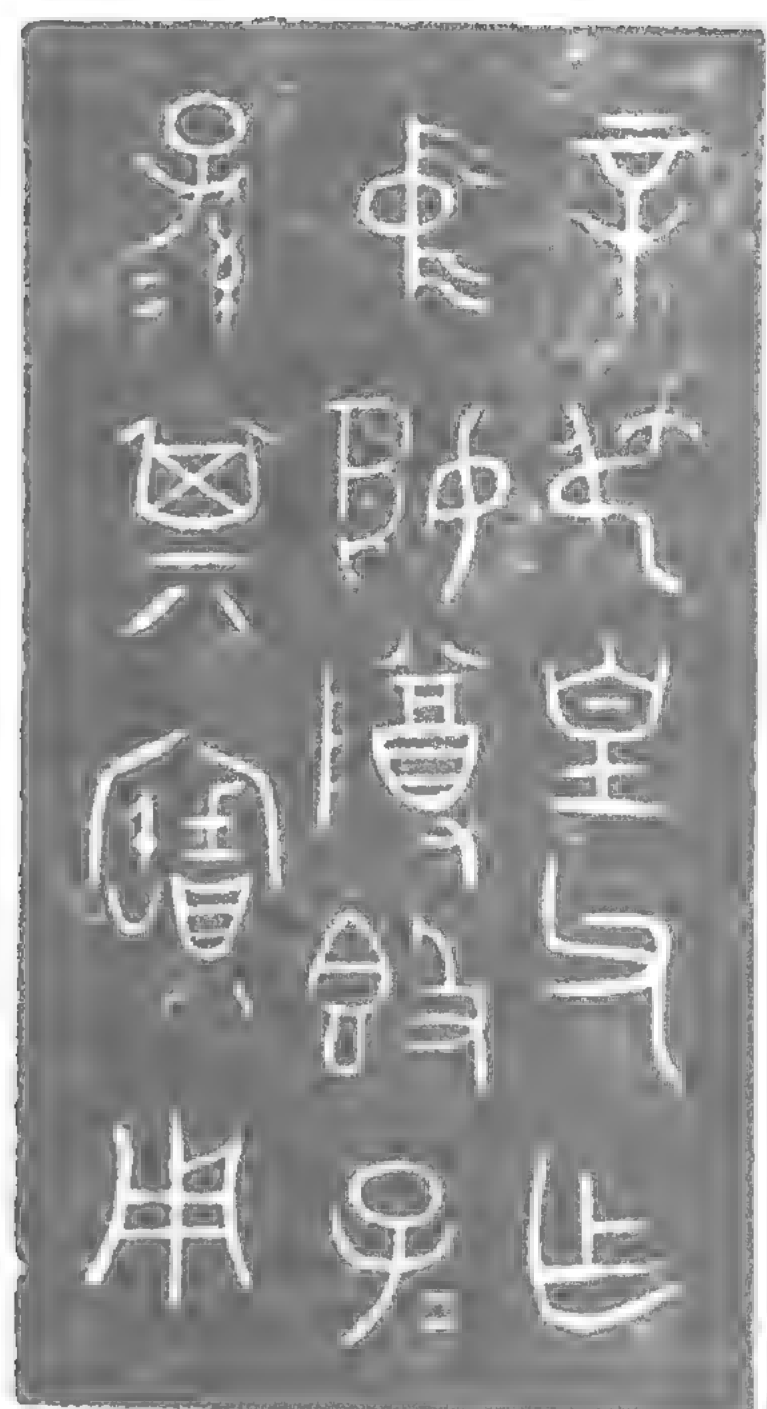 辛叔皇父乍
中姬尊𣪘子=
孫=其寶用